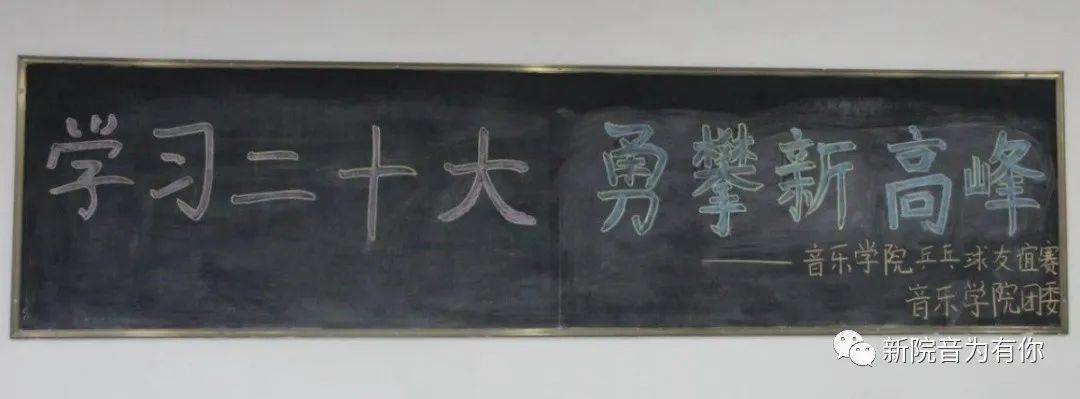 学习二十大 勇攀新高峰
——音乐学院乒乓球友谊赛
音乐学院团委
新院音为有你